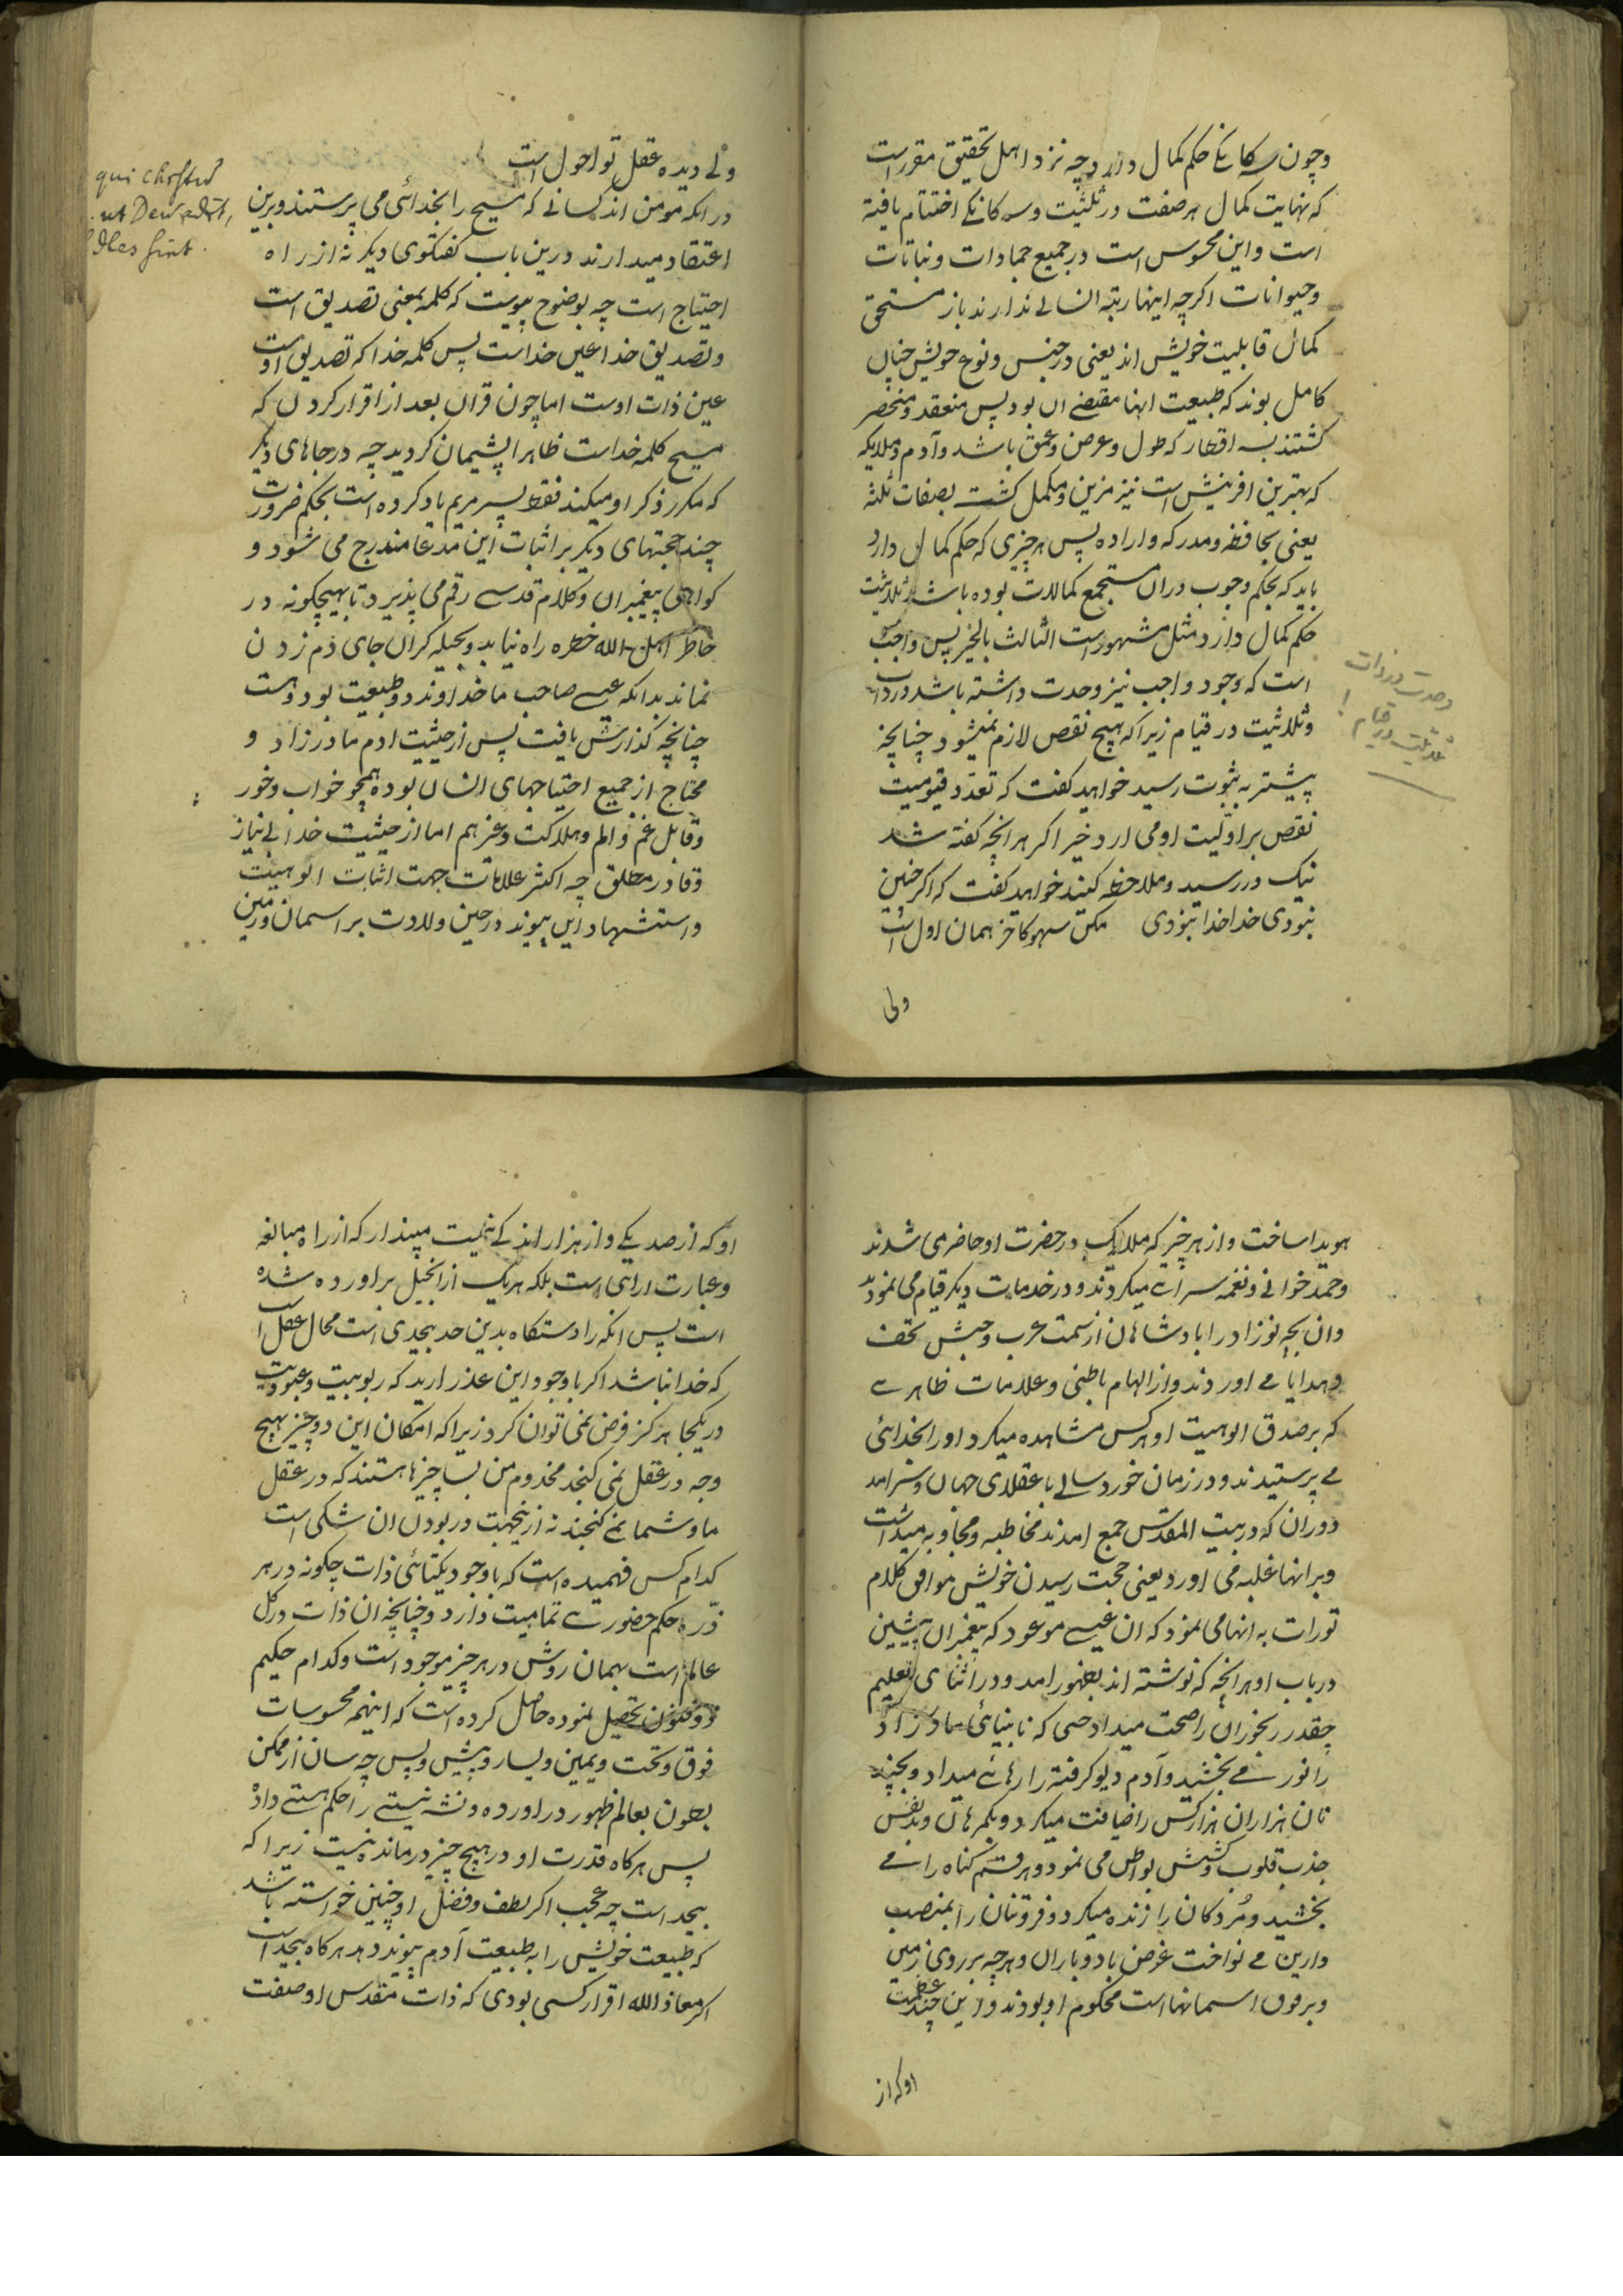 وچون سه کانکے حکم کمال دارد چه نزد اهل تحقیق مقرر است
که نهایت کمال هر صفت در تثلیث وسه کانکے اختتام یافته
است واین محسوس است در جمیع جمادات ونباتات
وحیوانات اکرچه اینها رتبه انسانے ندارند باز مستحق
کمال قابلیت خویش اند یعنی در جنس ونوع خویش چنان
کامل بوند که طبیعت انها مقتضے ان بود پس منعقد ومنحصر
کشتند بسه اقطار که طول وعرض وعمق باشد وآدم وملایکه
که بهترین افرینش است نیز مزین ومکمل کشت بصفات ثلثه
یعنی بحافظه ومدرکه واراده پس هر چیزی که حکم کمال دارد
باید که بحکم وجوب دران مستجمع کمالات بوده باشد ثلاثیت
حکم کمال دارد مثل مشهور است الثالث بالخیر پس واجب
است که وجود واجب نیز وحدت داشته باشد در ذات
وثلاثیت در قیام زیرا که هیچ نقص لازم نمیشود چنانچه
پیشتر به ثبوت رسید خواهید کفت که تعدد قیومیت
نقص بر اولیت او می ارد خیر اکر هر انچه کفته شد
نیک در رسید وملاحظه کنید خواهد کفت که اکر چنین
نبودی خدا خدا نبودی مکن سهو کاخر همان اول است
ولی
وحدت در ذات
تثلیث در قیام
ولے دیده عقل تو احول است
در انکه مومن اند کسانے که مسیح را بخدائی می پرستند وبرین
اعتقاد میدارند درین باب کفتکوی دیکر نه از راه
احتیاج است چه بوضوح پیوست که کلمه بمعنی تصدیق است
وتصدیق خدا عین خداست پس کلمه خدا که تصدیق اوست
عین ذات اوست اما چون قران بعد از اقرار کردن که
مسیح کلمه خداست ظاهرا پشیمان کردید چه در جاهای دیکر
که مکرر ذکر او میکند فقط پسر مریم یاد کرده است بحکم ضرورت
چند حجتهای دیکر بر اثبات این مدعا مندرج می شود و
کواهی پیغمبران وکلام قدسے رقم می پذیرد تا بهیچکونه در
خاطر اهل الله خطره راه نیابد وحیله کران جای دم زدن
نماند بدانکه عیسے صاحب ما خداوند دو طبیعت بود وهست
چنانچه کذارش یافت پس از حیثیت ادم مادر زاد و
محتاج از جمیع احتیاجهای انسان بوده همچو خواب وخور
وقابل غم والم وهلاکت وغیرهم اما از حیثیت خدا بے نیاز
وقادر مطلق چه اکثر علامات جهت اثبات الوهیت
واستشهاد این پیوند در حین ولادت بر اسمان وزمین
qui chrstū
ut Deū
sint.
هویدا ساخت واز هر چیز که ملایک در حضرت او حاضر می شدند
وحمد خوانے ونغمه سرائے میکردند ودر خدمات دیکر قیام می نمودند
وان بچه نوزاد را بادشاهان از سمت عرب وحبش تحف
وهدایا مے اوردند واز الهام باطنی وعلامات ظاهرے
که بر صدق الوهیت او هر کس مشاهده میکرد اورا بخدائی
مے پرستیدند ودر زمان خورد سالے با عقلای جهان وسرامد
دوران که در بیت المقدس جمع امدند مخاطبه ومجاوبه میداشت
وبر انها غلبه می اورد یعنی حجت رسیدن خویش موافق کلام
تورات به انها می نمود که ان عیسے موعود که پیغمبران پیشین
در باب او هر انچه که نوشته اند بظهور امد ودر اثنای تعلیم
چقدر رنجوران را صحت میداد حتی که نابینائی مادر زاد
را نور مے بخشید وآدم دیو کرفته را رهائے میداد وبچند
نان هزاران هزار کس را ضیافت میکرد وبکمرهان وبدنفس
جذب قلوب وکشش بواطن می نمود وهر قسم کناه را مے
بخشید ومردکان را زنده میکرد وفروتنان را بمنصب
دارین مے نواخت غرض باد وباران وهر چه بر روی زمین
وبر فوق اسمانها است محکوم او بودند واین چند عظمت
او که از
او که از صد یکے واز هزار اندکے نیست مپندار که از راه مبالغه
وعبارت ارائی است بلکه هر یک از انجیل بر اورده شده
است پس انکه را دستکاه بدین حد بیحدی است محال عقل است
که خدا نباشد اکر باوجود این عذر ارید که ربوبیت وعبودیت
در یکجا هرکز فرض نمی توان کرد زیرا که امکان این دو چیز بهیچ
وجه در عقل نمی کنجد مخدوم من بسا چیزها هستند که در عقل
ما وشما نمے کنجند نه ازینجهت در بودن ان شکی است
کدام کس فهمیده است که باوجود یکتائی ذات چکونه در هر
ذره حکم حضورے تمامیت دارد وچنانچه ان ذات در کل
عالم است بهمان روش در هر چیز موجود است وکدام حکیم
ذوفنون تحصیل نموده حاصل کرده است که اینهمه محسوسات
فوق وتحت ویمین ویسار وپیش وپس چه سان از ممکن
بطون بعالم ظهور در اورده ونشه نیستے را حکم هستے داد
پس هرکاه قدرت او در هیچ چیز درمانده نیست زیرا که
بیحد است چه عجب اکر لطف وفضل او چنین خواسته باشد
که طبیعت خویش را به طبیعت آدم پیوند دهد هرکاه بیحد است
اکر معاذ الله اقرار کسی بودی که ذات مقدس او صفت